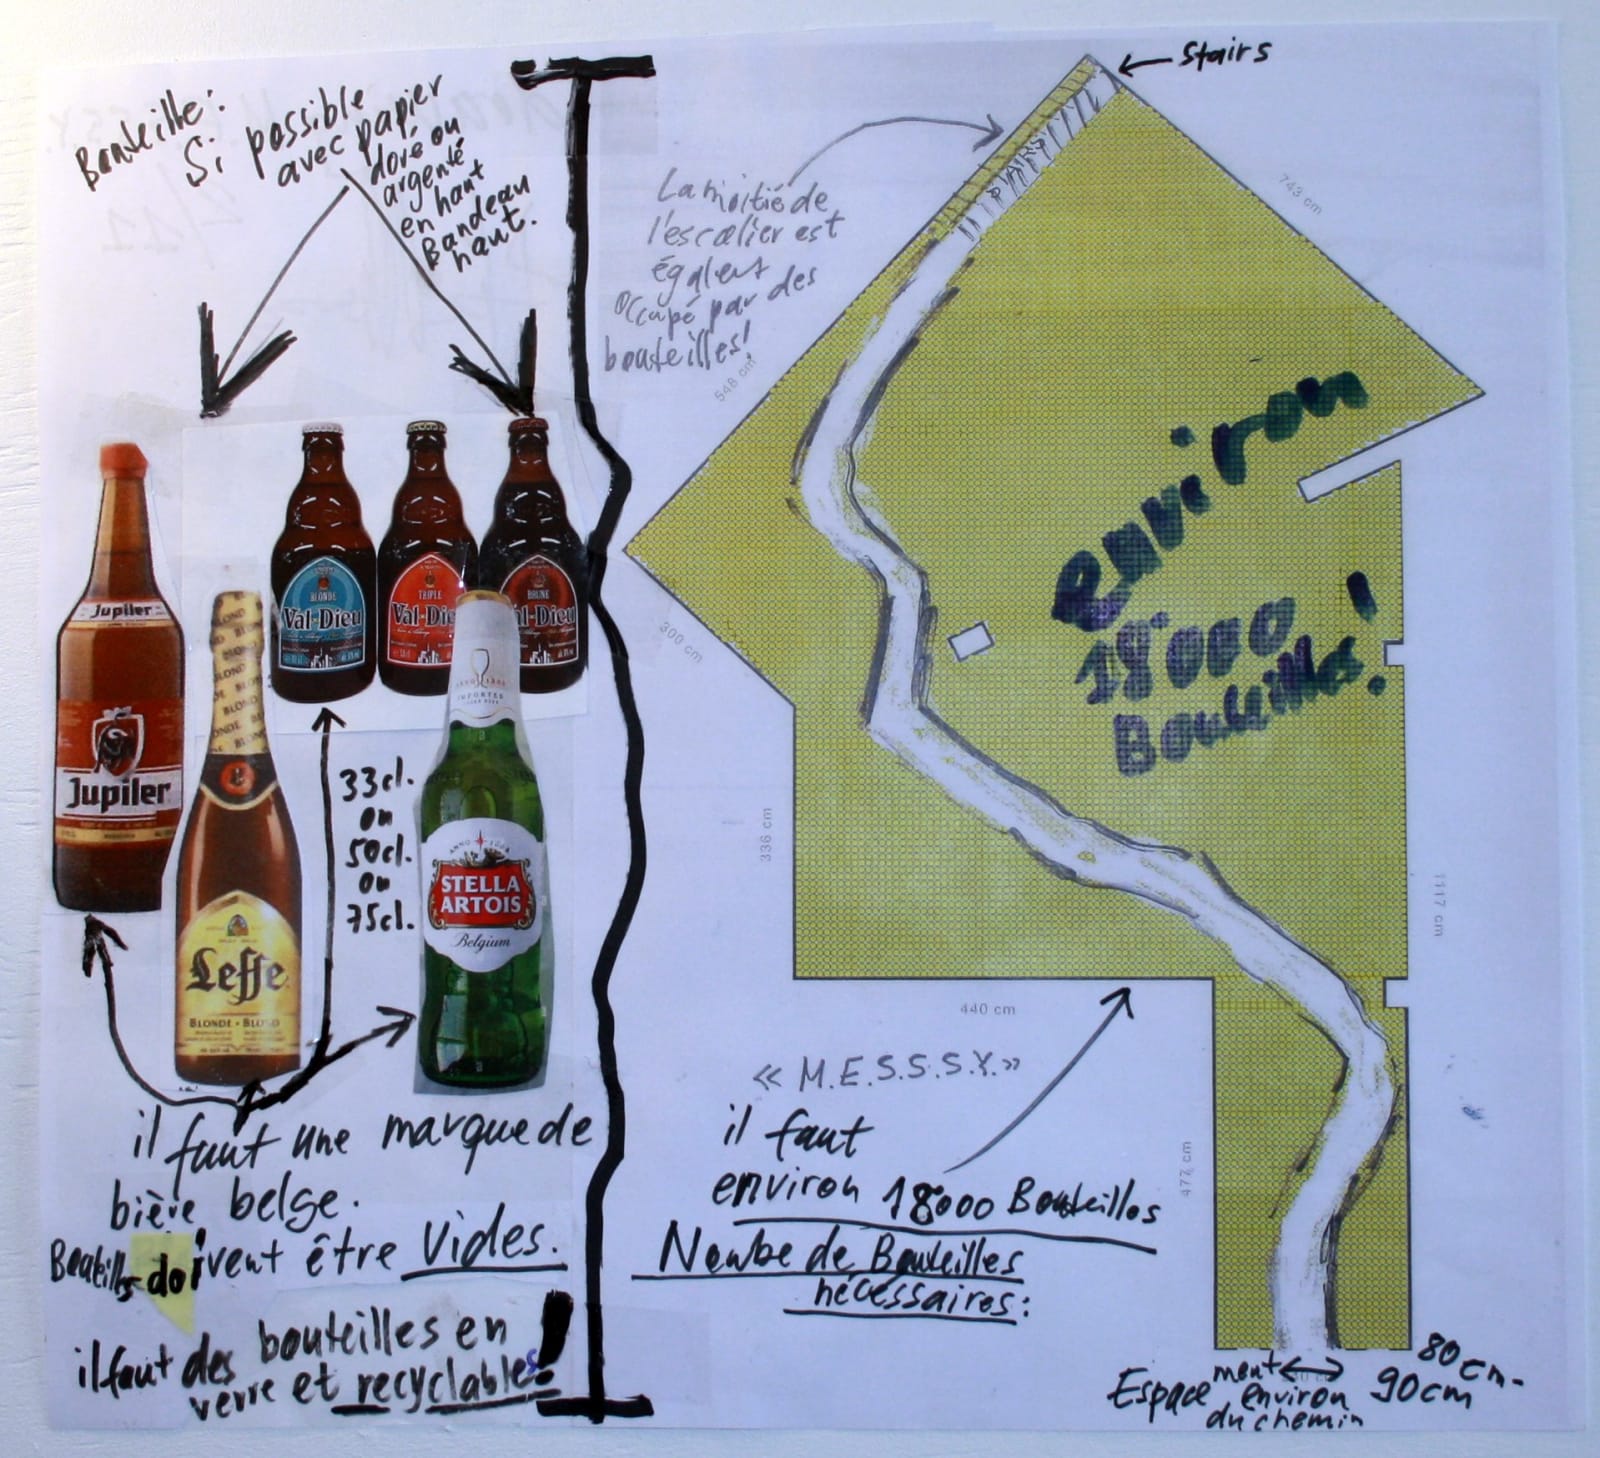 Bouteille:
Si possible
avec papier
doré ou
argenté
en haut
Bandeau
haut.
Jupiler
Jupiler
BLONDE
Val-Dieu
TRIPLE
Val-Die
BRUNE
al-Dieu
33cl.
ou
50cl.
ou
75cl.
Leffe
BLONDE • BLOND
IMPORTED
ANNO
STELLA
ARTOIS
Belgium
il faut une marque de
bière belge.
Bouteilles doivent être Vides.
il faut des bouteilles en
verre et recyclables!
Stairs
STAIRS
La moitié de
l'escalier est
égalemt
occupé par des
bouteilles!
743 cm
548 cm
300 cm
336 cm
440 cm
1117 cm
477 cm
environ
18'000
Bouteilles!
« M.E.S.S.S.Y. »
il faut
environ 18'000 Bouteilles
Nombe de Bouteilles
nécessaires:
Espacement environ
du chemin
80 cm-
90 cm